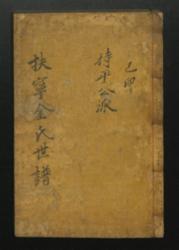 己卯
侍平公派
扶寧金氏世譜